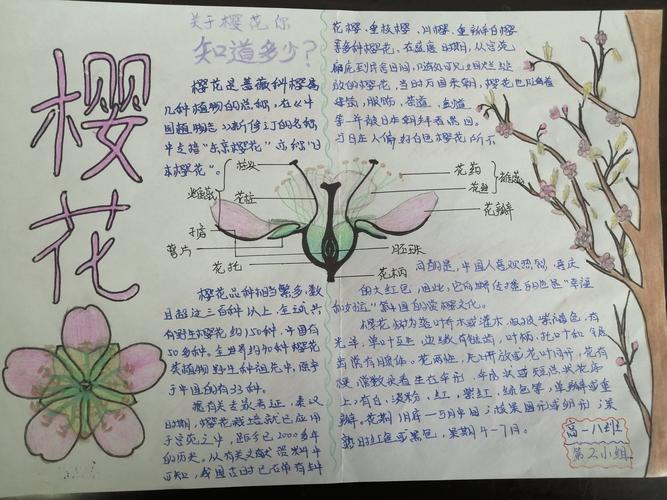 樱花
关于樱花你
知道多少?
樱花是蔷薇科樱属
几种植物的总称,在《中
国植物志》新修订的名称
中专指“东京樱花”,亦称“日
本樱花”。
柱头
雌蕊
花柱
子房
萼片
花托
花药
花丝
雄蕊
花瓣
胚珠
花柄
樱花品种相当繁多,数
目超过三百种以上,全球共
有野生樱花约150种,中国有
50多种。全世界约40种樱花
类植物野生种祖先中,原产
于中国的有33种。
据有关专家考证,秦汉
时期,樱花栽培就已应用
于宫苑之中,距今已2000多年
的历史。从有关文献资料中
可知,我国古时已在种有
花樱、垂枝樱、
等多种樱花。在盛唐时期,从宫苑
廊庑到民舍田间,随处可见绚烂绽
放的樱花。当时万国来朝,樱花也随着
建筑、服饰、茶道、剑道
等一并被日本朝拜者带回。
日本人偏好白色樱花
同的是,中国人喜欢热烈、喜庆
的大红色,因此,
樱花树为落叶乔木或灌木,
光泽,单叶互生,边缘有锯齿,叶柄、托叶和
出常有腺体。花两性,先叶开放或花叶同开,花有
梗,常数朵着生在伞形、伞房状或短总状花序
上;有白、淡粉、红、紫红、绿色等,单瓣或重
瓣。花期1月底-5月中旬;核果圆形或卵形;
熟时红色或黑色,果期4-7月。
高一八班
第2小组